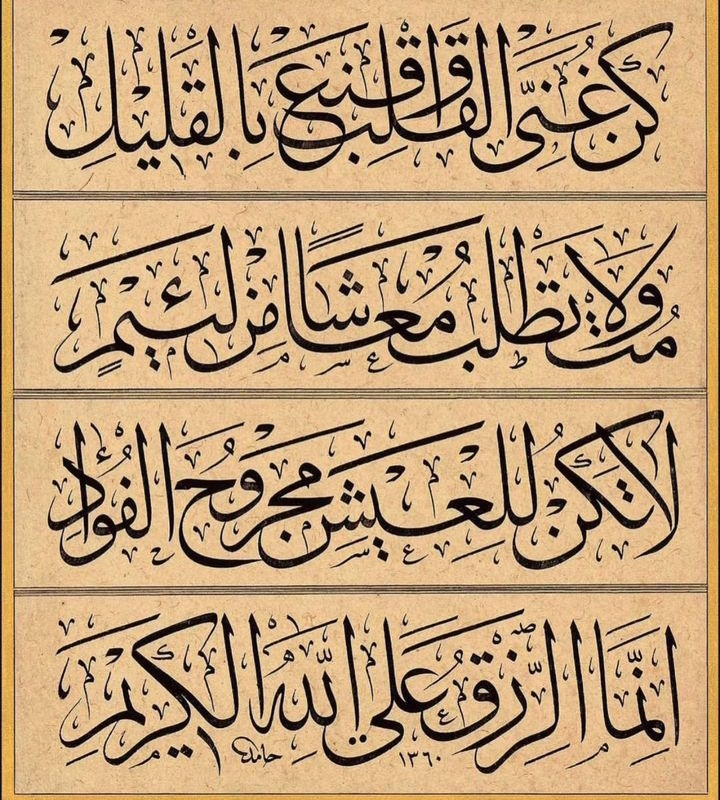 كن غني القلب واقنع بالقليل
مت ولا تطلب معاشا من لئيم
لا تكن للعيش مجروح الفؤاد
انما الرزق على الله الكريم
حامد ١٣٦٠